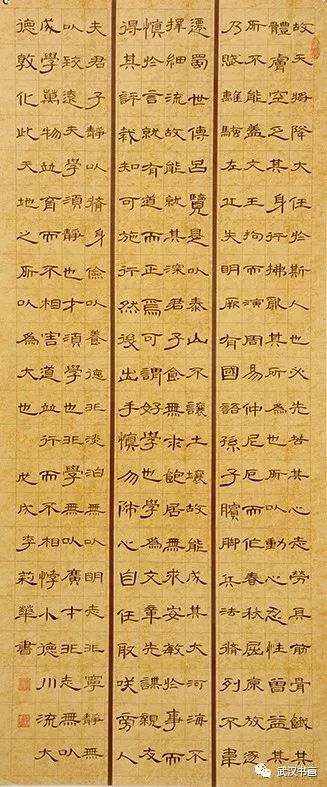 故天將降大任於斯人也必先苦其心志勞其筋骨餓其
體膚空乏其身行拂亂其所為所以動心忍性曾益其
所不能蓋文王拘而演周易仲尼厄而作春秋屈原放逐
乃賦離騷左丘失明厥有國語孫子臏腳兵法脩列不韋
遷蜀世傳呂覽是以泰山不讓土壤故能成其大河海不
擇細流故能就其深君子食無求飽居無求安敏於事而
慎於言就有道而正焉可謂好學也學為文章先謀親友
得其評裁知可施行然後出手慎勿師心自任取咲旁人
夫君子靜以脩身儉以養德非淡泊無以明志非寧靜無
以致遠夫學須靜也才須學也非學無以廣才非志無以
成學萬物並育而不相害道並行而不相悖小德川流大
德敦化此天地之所以為大也 戊戌李莉華書
武汉书画